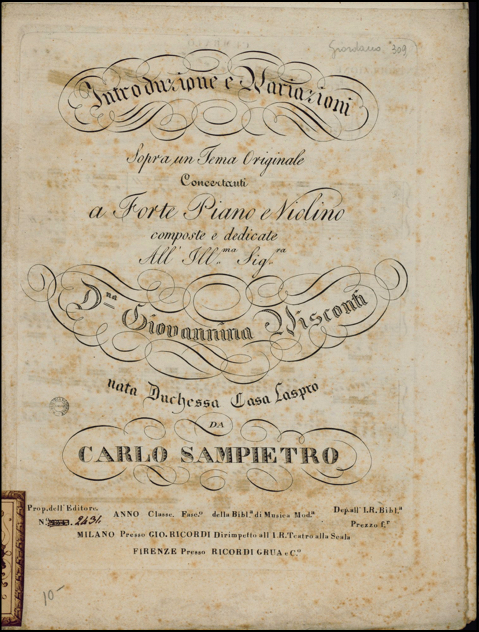 Giordano, 309
Introduzione e Variazioni
Sopra un Tema Originale
Concertanti
a Forte Piano e Violino
composte e dedicate
All' Ill.ma Sig.ra
D.na Giovannina Visconti
nata Duchessa Casa Laspro
DA
CARLO SAMPIETRO
Prop. dell' Editore. Dep. all' I.R. Bibl.a
N.º 2431. ANNO Classe, Fasc.º della Bibl.a di Musica Mod.a Prezzo f.r
MILANO Presso GIO. RICORDI Dirimpetto all' I.R. Teatro alla Scala
FIRENZE Presso RICORDI GRUA e C.º
10-